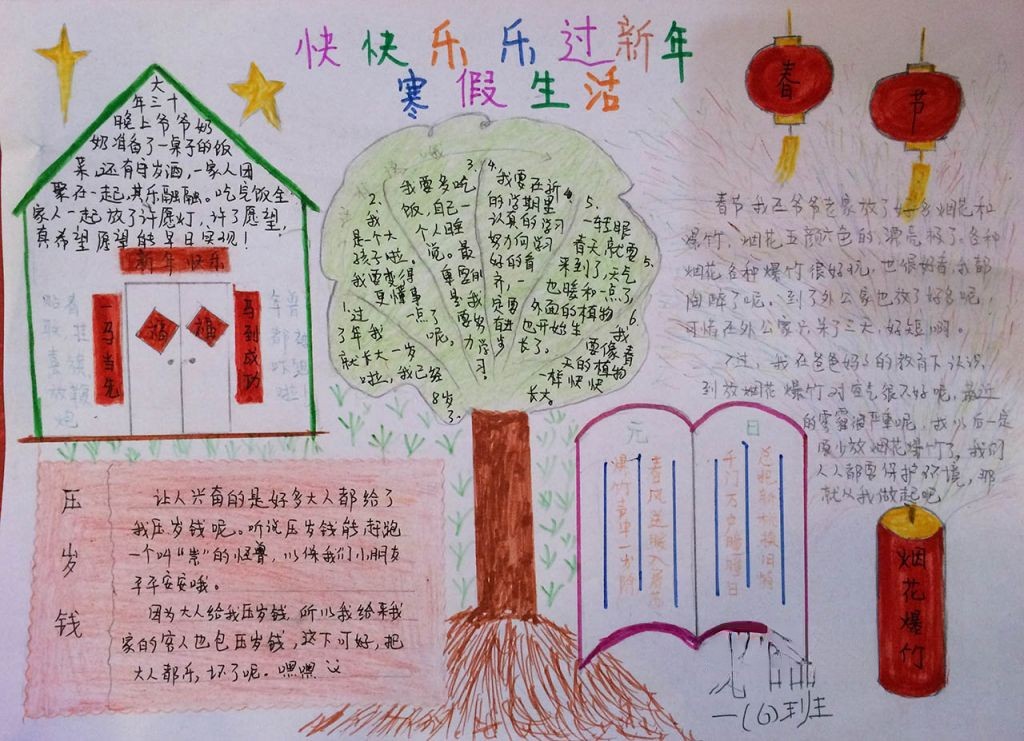 快快乐乐过新年
寒假生活
大
年三十
晚上爷爷奶
奶准备了一桌子的饭
菜,还有守岁酒,一家人团
聚在一起,其乐融融。吃完饭全
家人一起放了许愿灯,许了愿望,
真希望愿望能早日实现!
新年快乐
一马当先
福
福
马到成功
春
节
1.过
了年我
就长大一岁
啦,我已经
8岁了
2.我
是一个大
孩子啦。
我要变得
更懂事
一点了
呢。
3.我要多吃
饭,自己一
个人睡
觉。最
重要的
是我
要努
力学
习。
4.我要在新
的学期里
认真的学习
努力向学习
好的看
齐,一
定要
有进
步
5.一转眼
春天就要
来到了,天气
也暖和一点了,
外面的植物
也开始生
长了。
6.我
要像春
天的植物
一样快快
长大。
春节我在爷爷老家放了好多烟花和
爆竹,烟花五颜六色的,漂亮极了。各种
烟花各种爆竹很好玩,也很好看,我都
陶醉了呢,到了外公家也放了好多呢,
可惜在外公家只呆了三天,好短啊。
不过,我在爸爸妈妈的教育下认识
到放烟花爆竹对空气很不好呢,最近
的雾霾很严重呢,我以后一定
要少放烟花爆竹了,我们
人人都要保护环境,那
就从我做起吧
压岁钱
让人兴奋的是好多大人都给了
我压岁钱呢。听说压岁钱能赶跑
一个叫“祟”的怪兽,以保我们小朋友
平平安安哦。
因为大人给我压岁钱,所以我给来我
家的客人也包压岁钱,这下可好,把
大人都乐坏了呢。嘿嘿
元日
爆竹声中一岁除
春风送暖入屠苏
千门万户曈曈日
总把新桃换旧符
一(6)班
烟花爆竹